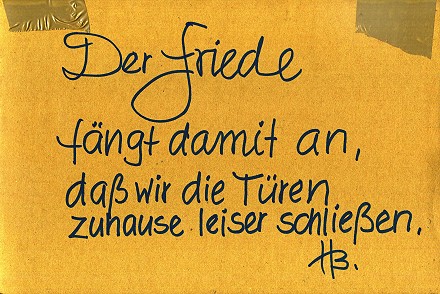 Der Friede
fängt damit an,
daß wir die Türen
zuhause leiser schließen.
HB.